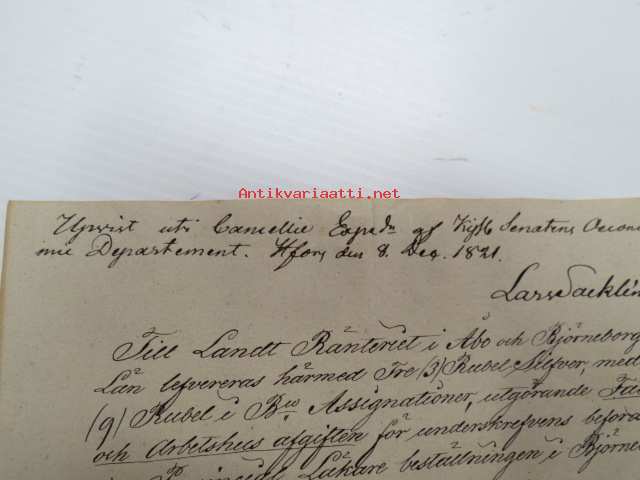 Antikvariaatti.net
Upvist uti Cancellie Exped:n af Kejs: Senatens Oecono
mie Departement. Hfors den 8. Dec. 1821.
Lars Sacklin
Till Landt Ränteriet i Åbo och Björneborg
Län lefvereras härmed Tre (3) Rubel Silfver, med
(9) Rubel i B:co Assignationer, utgörande
och Arbetshus afgiften för underskrefvens befora
Läkare beställningen i Björne